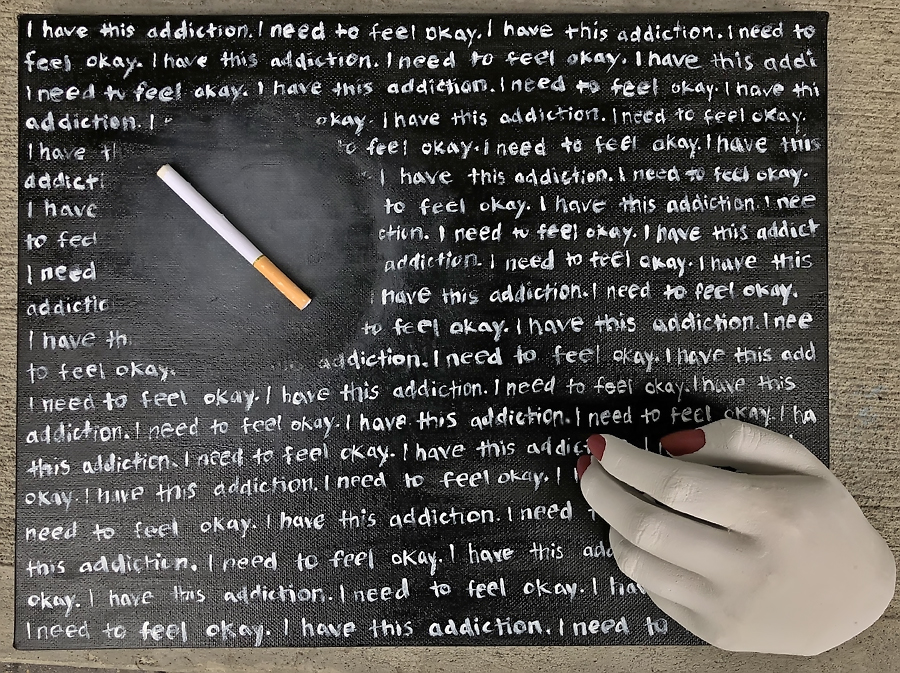 I have this addiction. I need to feel okay. I have this addiction. I need to
feel okay. I have this addiction. I need to feel okay. I have this addi
I need to feel okay. I have this addiction. I need to feel okay. I have thi
addiction. I okay. I have this addiction. I need to feel okay.
I have th to feel okay. I need to feel okay. I have this
addicti I have this addiction. I need to feel okay.
I have to feel okay. I have this addiction. I nee
to feel ction. I need to feel okay. I have this addict
I need addiction. I need to feel okay. I have this
addictio I have this addiction. I need to feel okay.
I have th to feel okay. I have this addiction. I nee
to feel okay. addiction. I need to feel okay. I have this add
I need to feel okay. I have this addiction. I need to feel okay. I have this
addiction. I need to feel okay. I have this addiction. I need to feel okay. I ha
this addiction. I need to feel okay. I have this addic
okay. I have this addiction. I need to feel okay. I
need to feel okay. I have this addiction. I need
this addiction. I need to feel okay. I have this add
okay. I have this addiction. I need to feel okay. I hav
I need to feel okay. I have this addiction. I need to